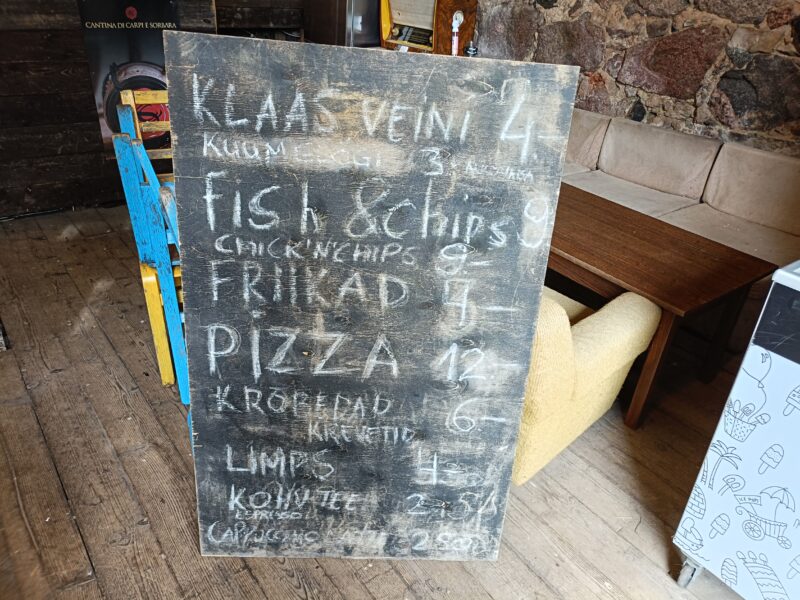 CANTINA DI CARPI E SORBARA
KLAAS VEINI 4.-
KUUM GLÖGI 3.-
Fish & chips 9
CHICK'N'CHIPS 9-
FRIIKAD 4-
PIZZA 12-
KRÕBEDAD 6-
KREVETID
LIMPS
KOHV TEE
ESPRESSO
CAPPUCCINO